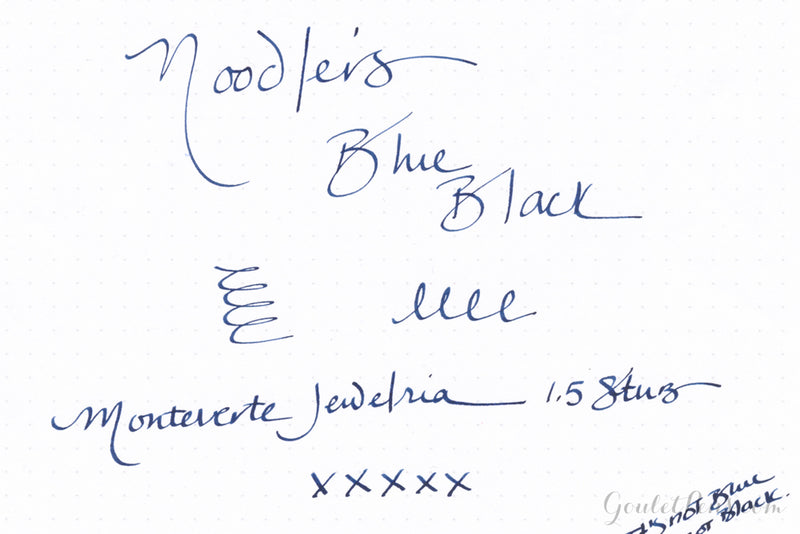 Noodler's
Blue
Black
Monteverte Jewelria 1.5 Stub
x x x x x
It's not Blue
not Black.
GouletPens.com